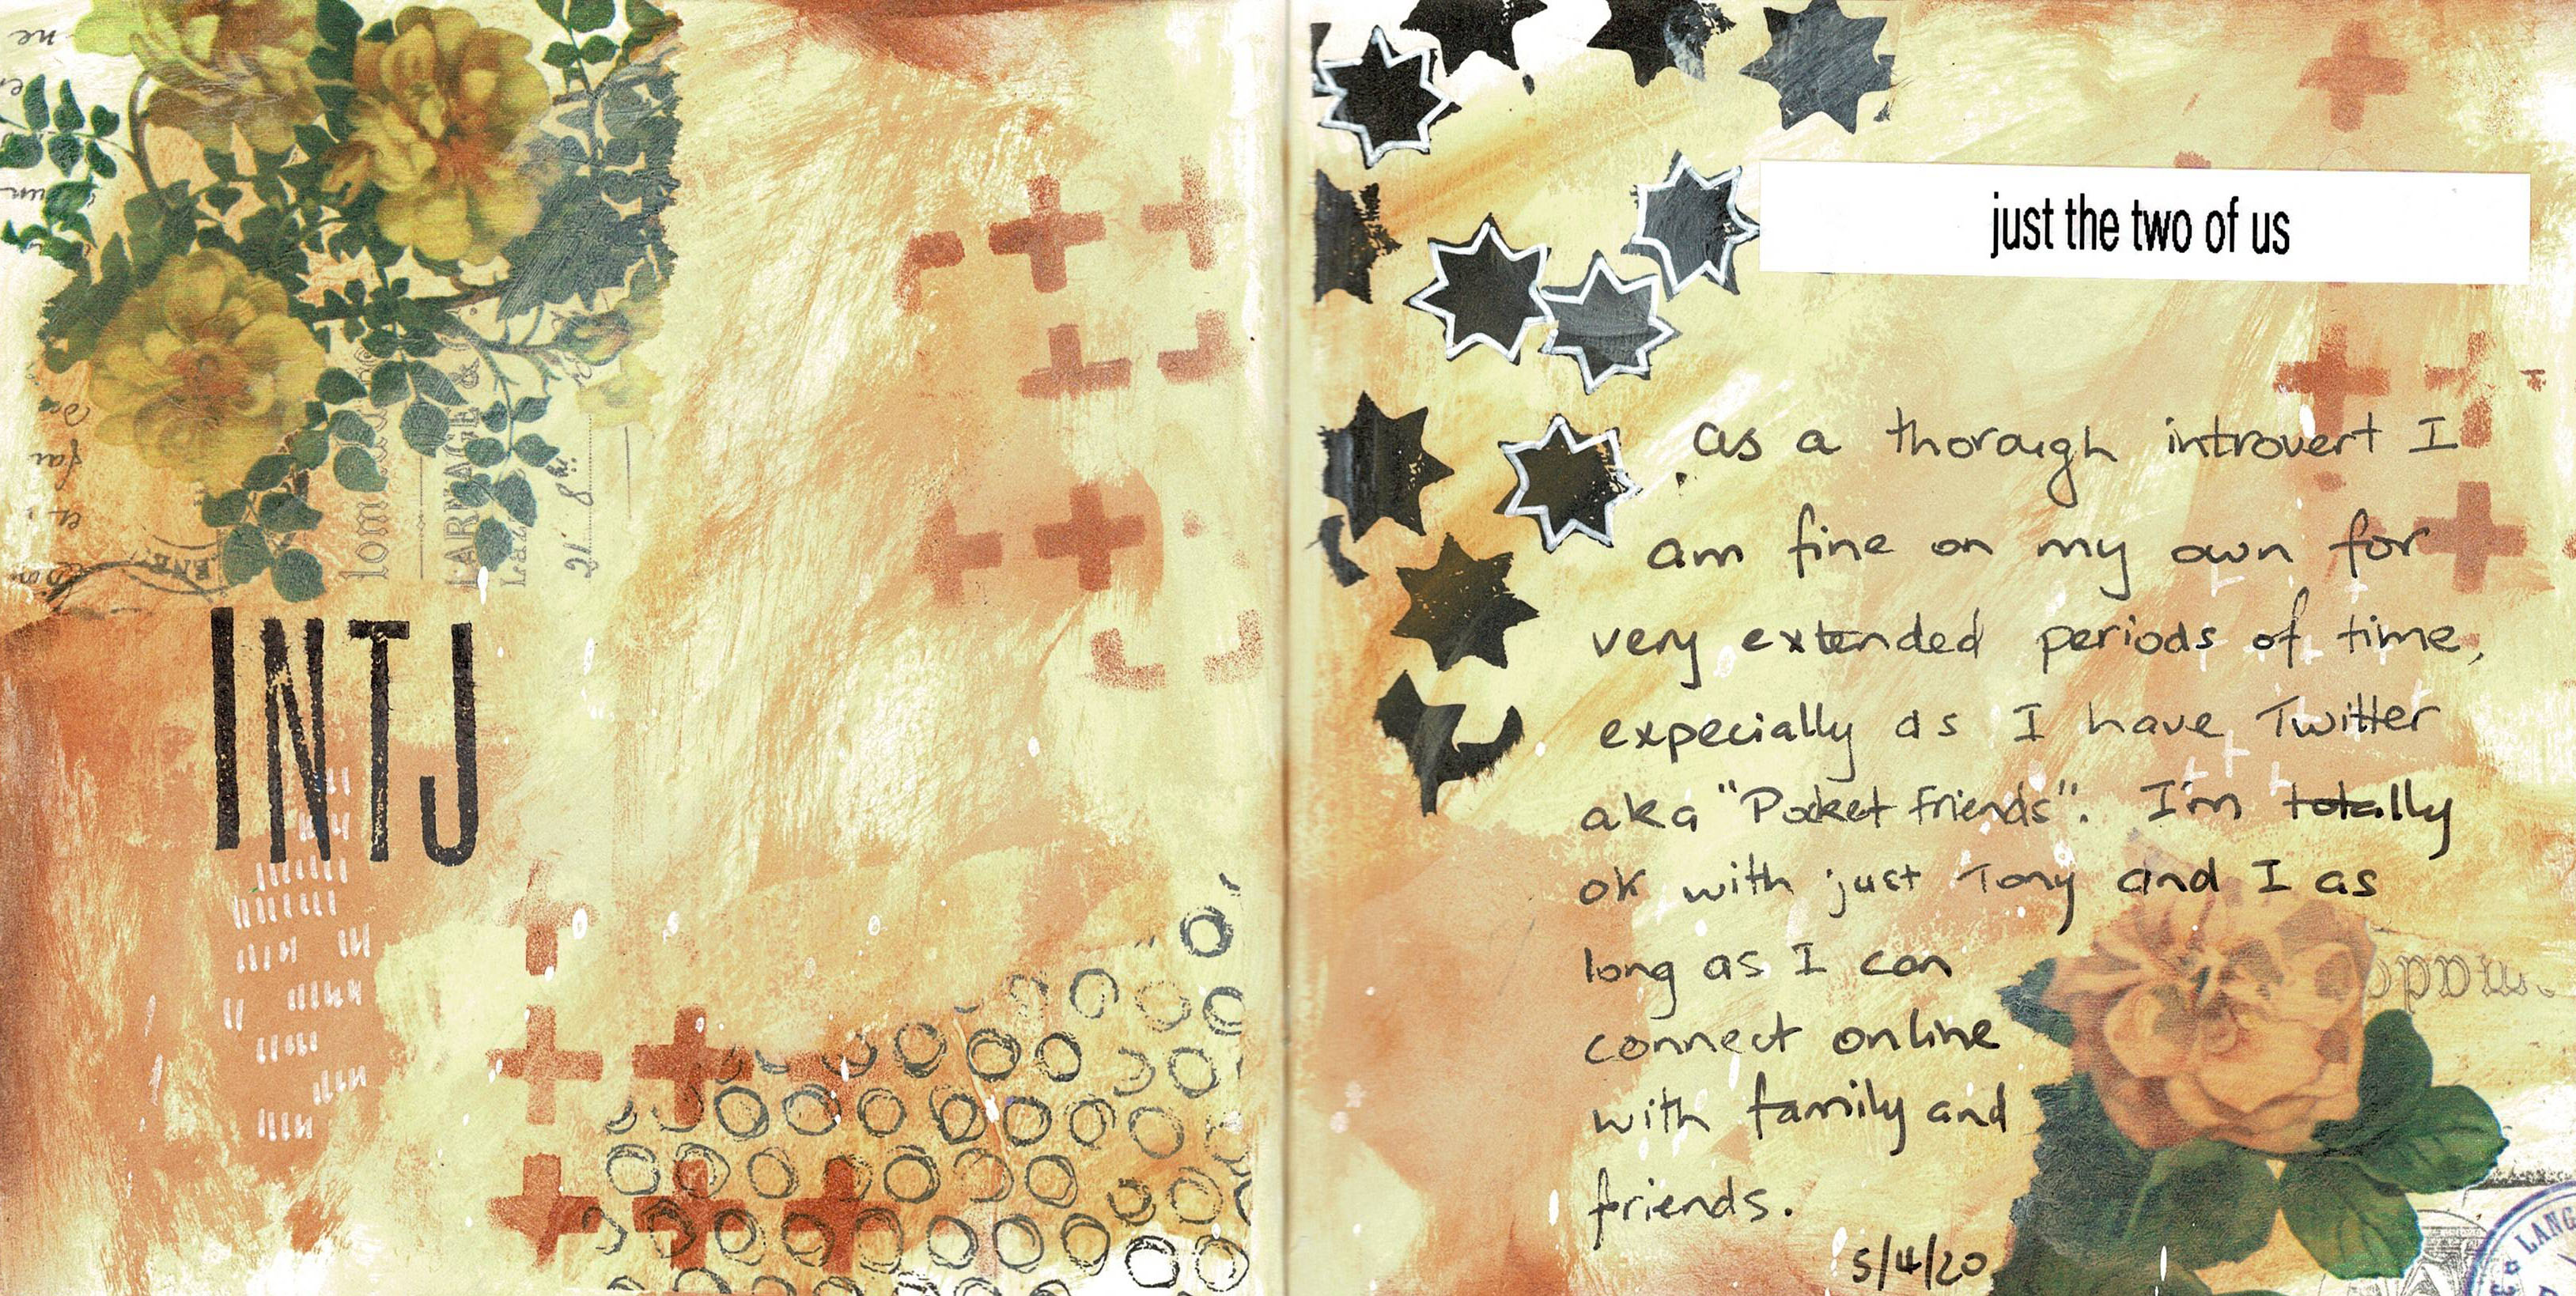 INTJ
just the two of us
as a thorough introvert I
am fine on my own for
very extended periods of time,
expecially as I have Twitter
aka "Pocket friends". I'm totally
ok with just Tony and I as
long as I can
connect online
with family and
friends.
5/4/20
LANG